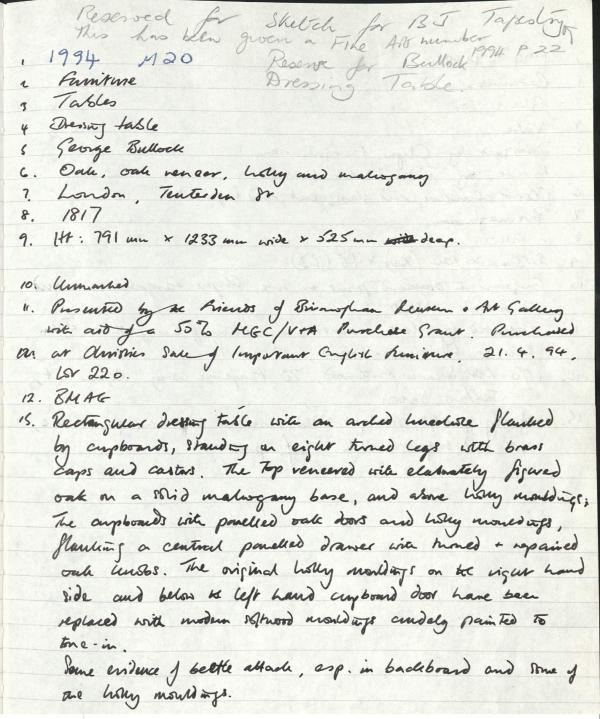 Reserved for Sketch for BJ Tapestry
This has been given a Fine Art number 1994 P 22
1 1994 M20 Reserve for Bullock
Dressing Table.
2 Furniture
3 Tables
4 Dressing table
5 George Bullock
6. Oak, oak veneer, holly and mahogany
7. London, Tenterden St
8. 1817
9. Ht: 791 mm × 1233 mm wide × 525 mm wide deep.
10. Unmarked
11. Presented by the Friends of Birmingham Museum + Art Gallery
with aid of a 50% MGC/V+A Purchase Grant. Purchased
at Christies Sale of Important English Furniture, 21. 4. 94,
Lot 220.
12. BMAG
15. Rectangular dressing table with an arched kneehole flanked
by cupboards, standing on eight turned legs with brass
caps and castors. The top veneered with elaborately figured
oak on a solid mahogany base, and above holly mouldings;
The cupboards with panelled oak doors and holly mouldings,
flanking a central panelled drawer with turned + repaired
oak knobs. The original holly mouldings on the right hand
side and below the left hand cupboard door have been
replaced with modern softwood mouldings crudely painted to
tone-in.
Some evidence of beetle attack, esp. in backboard and some of
the holly mouldings.